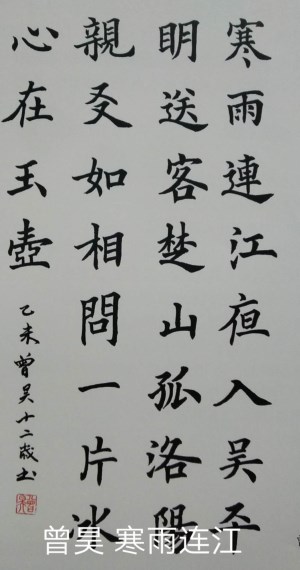 寒雨連江夜入吴平
明送客楚山孤洛陽
親友如相問一片冰
心在玉壺
乙未曾昊十二歲书
曾昊 寒雨连江